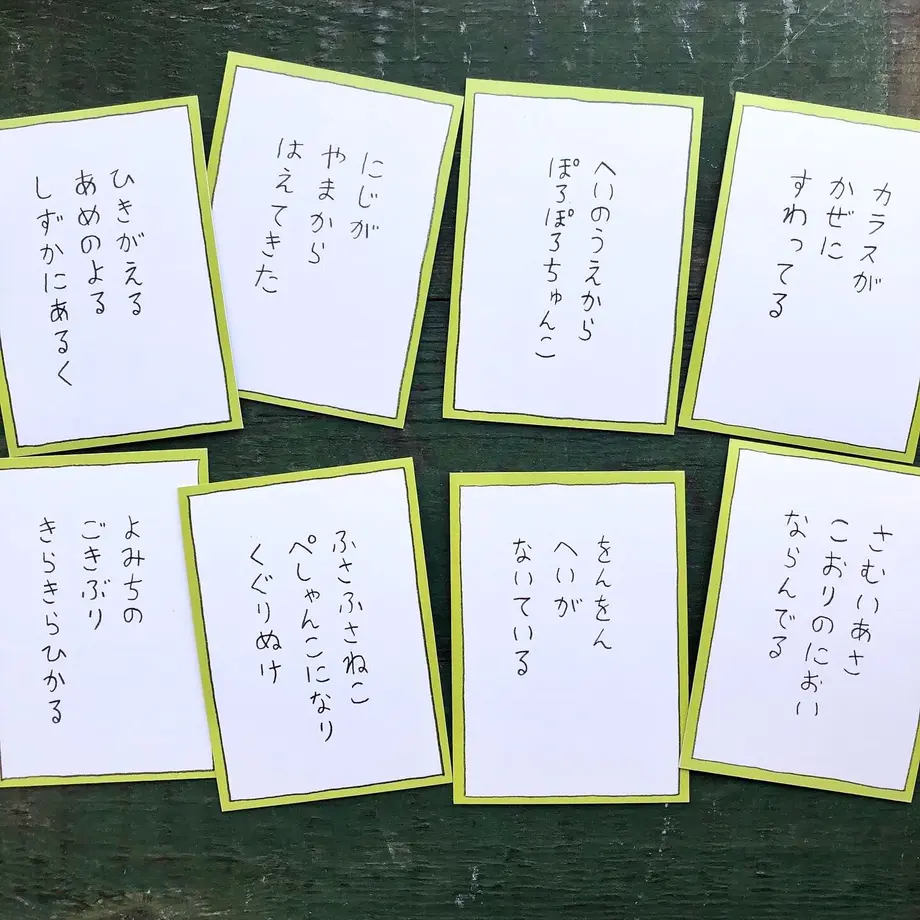 ひきがえる
あめのよる
しずかにあるく
にじが
やまから
はえてきた
へいのうえから
ぽろぽろちゅんこ
カラスが
かぜに
すわってる
よみちの
ごきぶり
きらきらひかる
ふさふさねこ
ぺしゃんこになり
くぐりぬけ
をんをん
へいが
ないている
さむいあさ
こおりのにおい
ならんでる